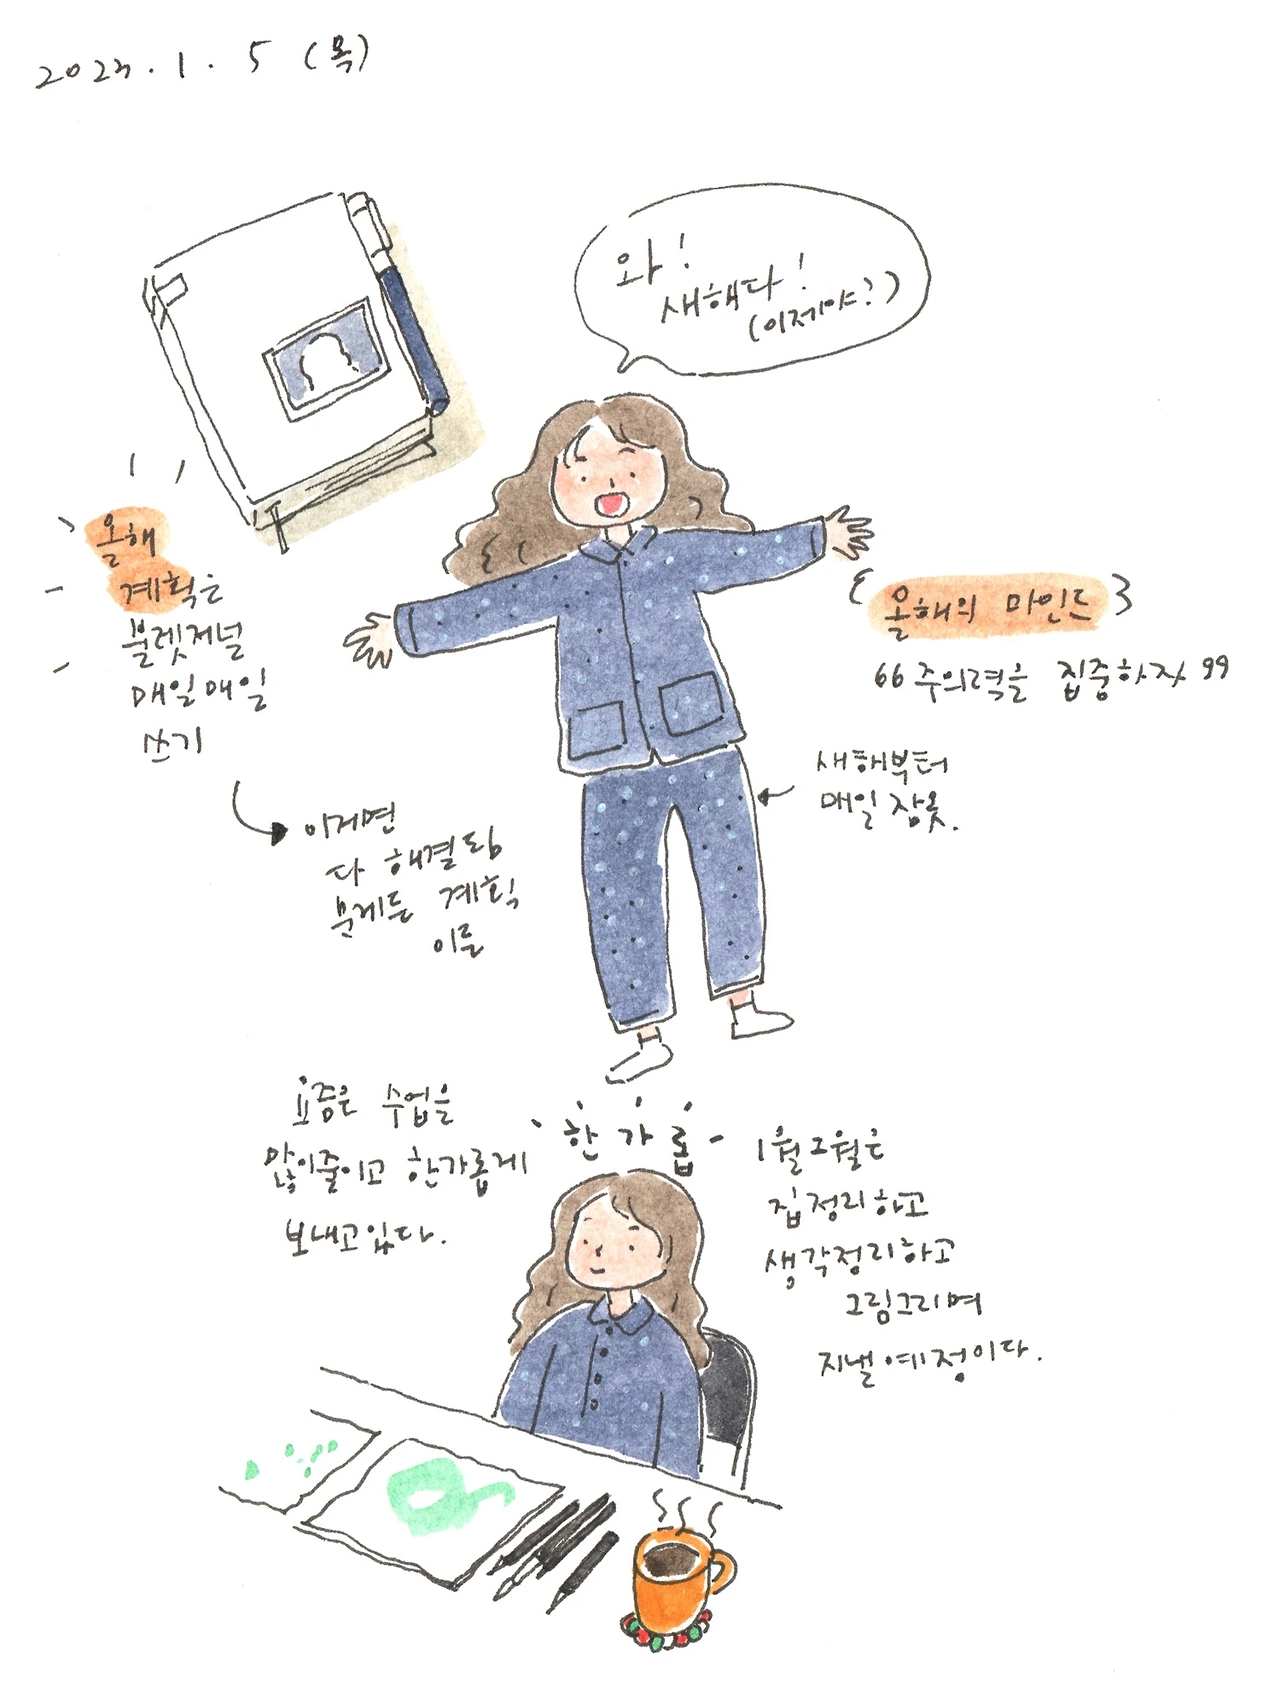 2023. 1. 5 (목)
와!
새해다!
(이제야?)
올해
계획은
불렛저널
매일매일
쓰기
이거면
다 해결될
문제들 계획
이룸
{올해의 마인드}
"주의력을 집중하자"
새해부터
매일 잠옷.
요즘은 수업을
많이줄이고 한가롭게
보내고있다.
한가롭
1월2월은
집정리하고
생각정리하고
그림그리며
지낼예정이다.